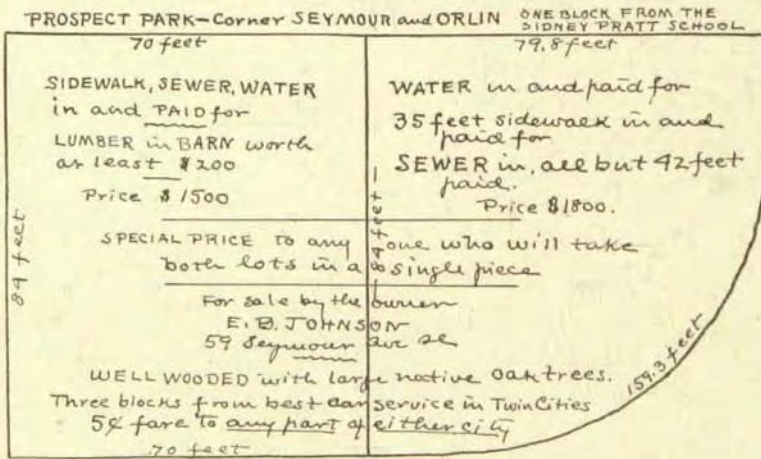 PROSPECT PARK - Corner SEYMOUR and ORLIN
ONE BLOCK FROM THE
SIDNEY PRATT SCHOOL
70 feet
79.8 feet
SIDEWALK, SEWER, WATER
in and PAID for
LUMBER in BARN worth
at least $200
Price $1500
WATER in and paid for
35 feet sidewalk in and
paid for
SEWER in, all but 42 feet
paid.
Price $1800.
89 feet
89 feet
SPECIAL PRICE to any one who will take
both lots in a single piece
For sale by the owner
E. B. JOHNSON
59 Seymour Ave SE
WELL WOODED with large native oak trees.
Three blocks from best car service in Twin Cities
5¢ fare to any part of either city
159.3 feet
70 feet